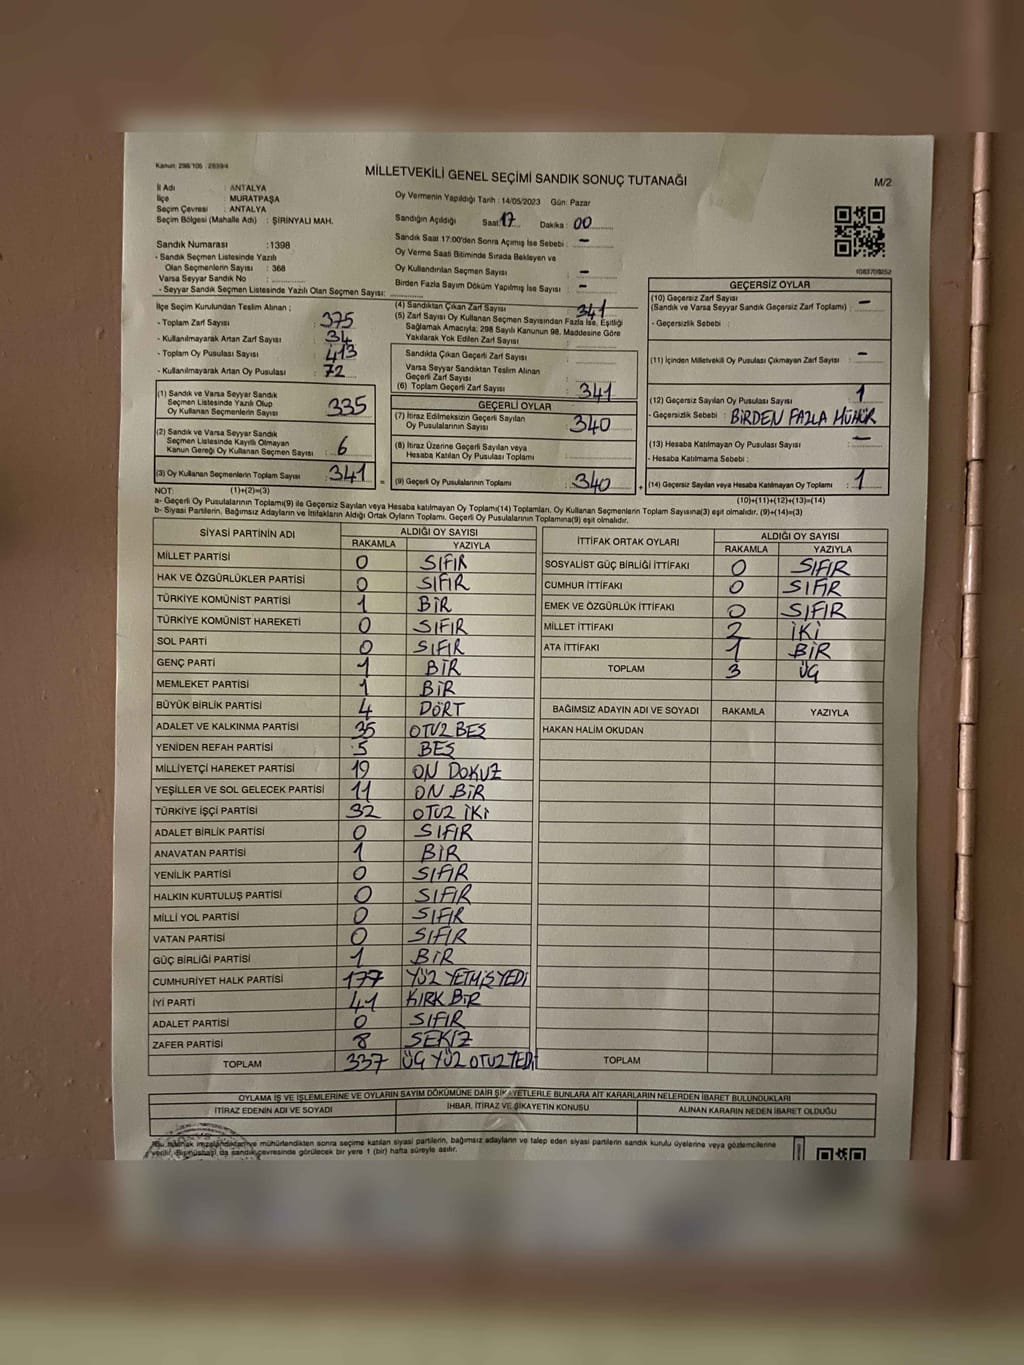 Kanun: 298/105 , 2839/4
MİLLETVEKİLİ GENEL SEÇİMİ SANDIK SONUÇ TUTANAĞI
M/2
İl Adı : ANTALYA
İlçe : MURATPAŞA
Seçim Çevresi : ANTALYA
Seçim Bölgesi (Mahalle Adı) : ŞİRİNYALI MAH.
Sandık Numarası :1398
- Sandık Seçmen Listesinde Yazılı
Olan Seçmenlerin Sayısı : 368
Varsa Seyyar Sandık No :
- Seyyar Sandık Seçmen Listesinde Yazılı Olan Seçmen Sayısı:
Oy Vermenin Yapıldığı Tarih : 14/05/2023 Gün: Pazar
Sandığın Açıldığı Saat: 17 Dakika : 00
Sandık Saat 17:00'den Sonra Açılmış İse Sebebi : -
Oy Verme Saati Bitiminde Sırada Bekleyen ve
Oy Kullandırılan Seçmen Sayısı : -
Birden Fazla Sayım Döküm Yapılmış İse Sayısı : -
1083709252
İlçe Seçim Kurulundan Teslim Alınan ;
- Toplam Zarf Sayısı : 375
- Kullanılmayarak Artan Zarf Sayısı : 34
- Toplam Oy Pusulası Sayısı : 413
- Kullanılmayarak Artan Oy Pusulası : 72
(1) Sandık ve Varsa Seyyar Sandık
Seçmen Listesinde Yazılı Olup
Oy Kullanan Seçmenlerin Sayısı : 335
(2) Sandık ve Varsa Seyyar Sandık
Seçmen Listesinde Kayıtlı Olmayan
Kanun Gereği Oy Kullanan Seçmen Sayısı : 6
(3) Oy Kullanan Seçmenlerin Toplam Sayısı : 341
(4) Sandıktan Çıkan Zarf Sayısı : 341
(5) Zarf Sayısı Oy Kullanan Seçmen Sayısından Fazla İse, Eşitliği
Sağlamak Amacıyla; 298 Sayılı Kanunun 98. Maddesine Göre
Yakılarak Yok Edilen Zarf Sayısı :
Sandıkta Çıkan Geçerli Zarf Sayısı :
Varsa Seyyar Sandıktan Teslim Alınan
Geçerli Zarf Sayısı :
(6) Toplam Geçerli Zarf Sayısı : 341
GEÇERLİ OYLAR
(7) İtiraz Edilmeksizin Geçerli Sayılan
Oy Pusulalarının Sayısı : 340
(8) İtiraz Üzerine Geçerli Sayılan veya
Hesaba Katılan Oy Pusulası Toplamı :
= (9) Geçerli Oy Pusulalarının Toplamı : 340
GEÇERSİZ OYLAR
(10) Geçersiz Zarf Sayısı
(Sandık ve Varsa Seyyar Sandık Geçersiz Zarf Toplamı) : -
- Geçersizlik Sebebi :
(11) İçinden Milletvekili Oy Pusulası Çıkmayan Zarf Sayısı : -
(12) Geçersiz Sayılan Oy Pusulası Sayısı : 1
- Geçersizlik Sebebi : BİRDEN FAZLA MÜHÜR
(13) Hesaba Katılmayan Oy Pusulası Sayısı : -
- Hesaba Katılmama Sebebi :
+ (14) Geçersiz Sayılan veya Hesaba Katılmayan Oy Toplamı : 1
NOT: (1)+(2)=(3)
(10)+(11)+(12)+(13)=(14)
a- Geçerli Oy Pusulalarının Toplamı(9) ile Geçersiz Sayılan veya Hesaba katılmayan Oy Toplamı(14) Toplamları, Oy Kullanan Seçmenlerin Toplam Sayısına(3) eşit olmalıdır, (9)+(14)=(3)
b- Siyasi Partilerin, Bağımsız Adayların ve İttifakların Aldığı Ortak Oyların Toplamı, Geçerli Oy Pusulalarının Toplamına(9) eşit olmalıdır.
SİYASİ PARTİNİN ADI ALDIĞI OY SAYISI
RAKAMLA YAZIYLA
MİLLET PARTİSİ 0 SIFIR
HAK VE ÖZGÜRLÜKLER PARTİSİ 0 SIFIR
TÜRKİYE KOMÜNİST PARTİSİ 1 BİR
TÜRKİYE KOMÜNİST HAREKETİ 0 SIFIR
SOL PARTİ 0 SIFIR
GENÇ PARTİ 1 BİR
MEMLEKET PARTİSİ 1 BİR
BÜYÜK BİRLİK PARTİSİ 4 DÖRT
ADALET VE KALKINMA PARTİSİ 35 OTUZ BEŞ
YENİDEN REFAH PARTİSİ 5 BEŞ
MİLLİYETÇİ HAREKET PARTİSİ 19 ON DOKUZ
YEŞİLLER VE SOL GELECEK PARTİSİ 11 ON BİR
TÜRKİYE İŞÇİ PARTİSİ 32 OTUZ İKİ
ADALET BİRLİK PARTİSİ 0 SIFIR
ANAVATAN PARTİSİ 1 BİR
YENİLİK PARTİSİ 0 SIFIR
HALKIN KURTULUŞ PARTİSİ 0 SIFIR
MİLLİ YOL PARTİSİ 0 SIFIR
VATAN PARTİSİ 0 SIFIR
GÜÇ BİRLİĞİ PARTİSİ 1 BİR
CUMHURİYET HALK PARTİSİ 177 YÜZ YETMİŞ YEDİ
İYİ PARTİ 41 KIRK BİR
ADALET PARTİSİ 0 SIFIR
ZAFER PARTİSİ 8 SEKİZ
TOPLAM 337 ÜÇ YÜZ OTUZ YEDİ
İTTİFAK ORTAK OYLARI ALDIĞI OY SAYISI
RAKAMLA YAZIYLA
SOSYALİST GÜÇ BİRLİĞİ İTTİFAKI 0 SIFIR
CUMHUR İTTİFAKI 0 SIFIR
EMEK VE ÖZGÜRLÜK İTTİFAKI 0 SIFIR
MİLLET İTTİFAKI 2 İKİ
ATA İTTİFAKI 1 BİR
TOPLAM 3 ÜÇ
BAĞIMSIZ ADAYIN ADI VE SOYADI RAKAMLA YAZIYLA
HAKAN HALİM OKUDAN
TOPLAM
OYLAMA İŞ VE İŞLEMLERİNE VE OYLARIN SAYIM DÖKÜMÜNE DAİR ŞİKAYETLERLE BUNLARA AİT KARARLARIN NELERDEN İBARET BULUNDUKLARI
İTİRAZ EDENİN ADI VE SOYADI İHBAR, İTİRAZ VE ŞİKAYETİN KONUSU ALINAN KARARIN NEDEN İBARET OLDUĞU
İşbu tutanak imzalandıktan ve mühürlendikten sonra seçime katılan siyasi partilerin, bağımsız adayların ve talep eden siyasi partilerin sandık kurulu üyelerine veya gözlemcilerine
verilir. Bir nüshası da sandık çevresinde görülecek bir yere 1 (bir) hafta süreyle asılır.